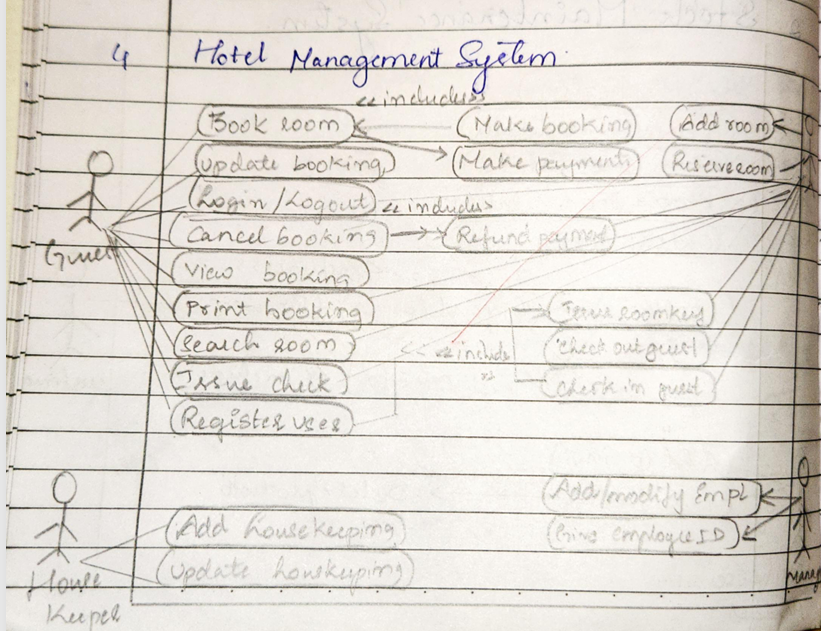 4 Hotel Management System
<<includes>>
Book room Make booking Add room
Update booking Make payments Reserve room
Login/Logout <<includes>
Cancel booking Refund payment
Guest
View booking
Print booking Issue roomkey
Search room <<include>> Check out guest
Issue check Check in guest
Register user
Add/modify Empl
Add housekeeping Give employee ID
Update housekeeping
House
Keeper